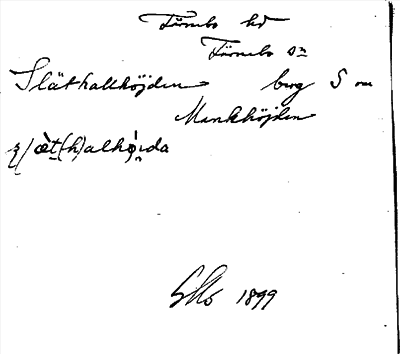 Törnebo hd
Törnebo sn
Släthallhöjden berg S om
Munkhöjden
ʂlæ̀t(h)alhø̀ıda
1899